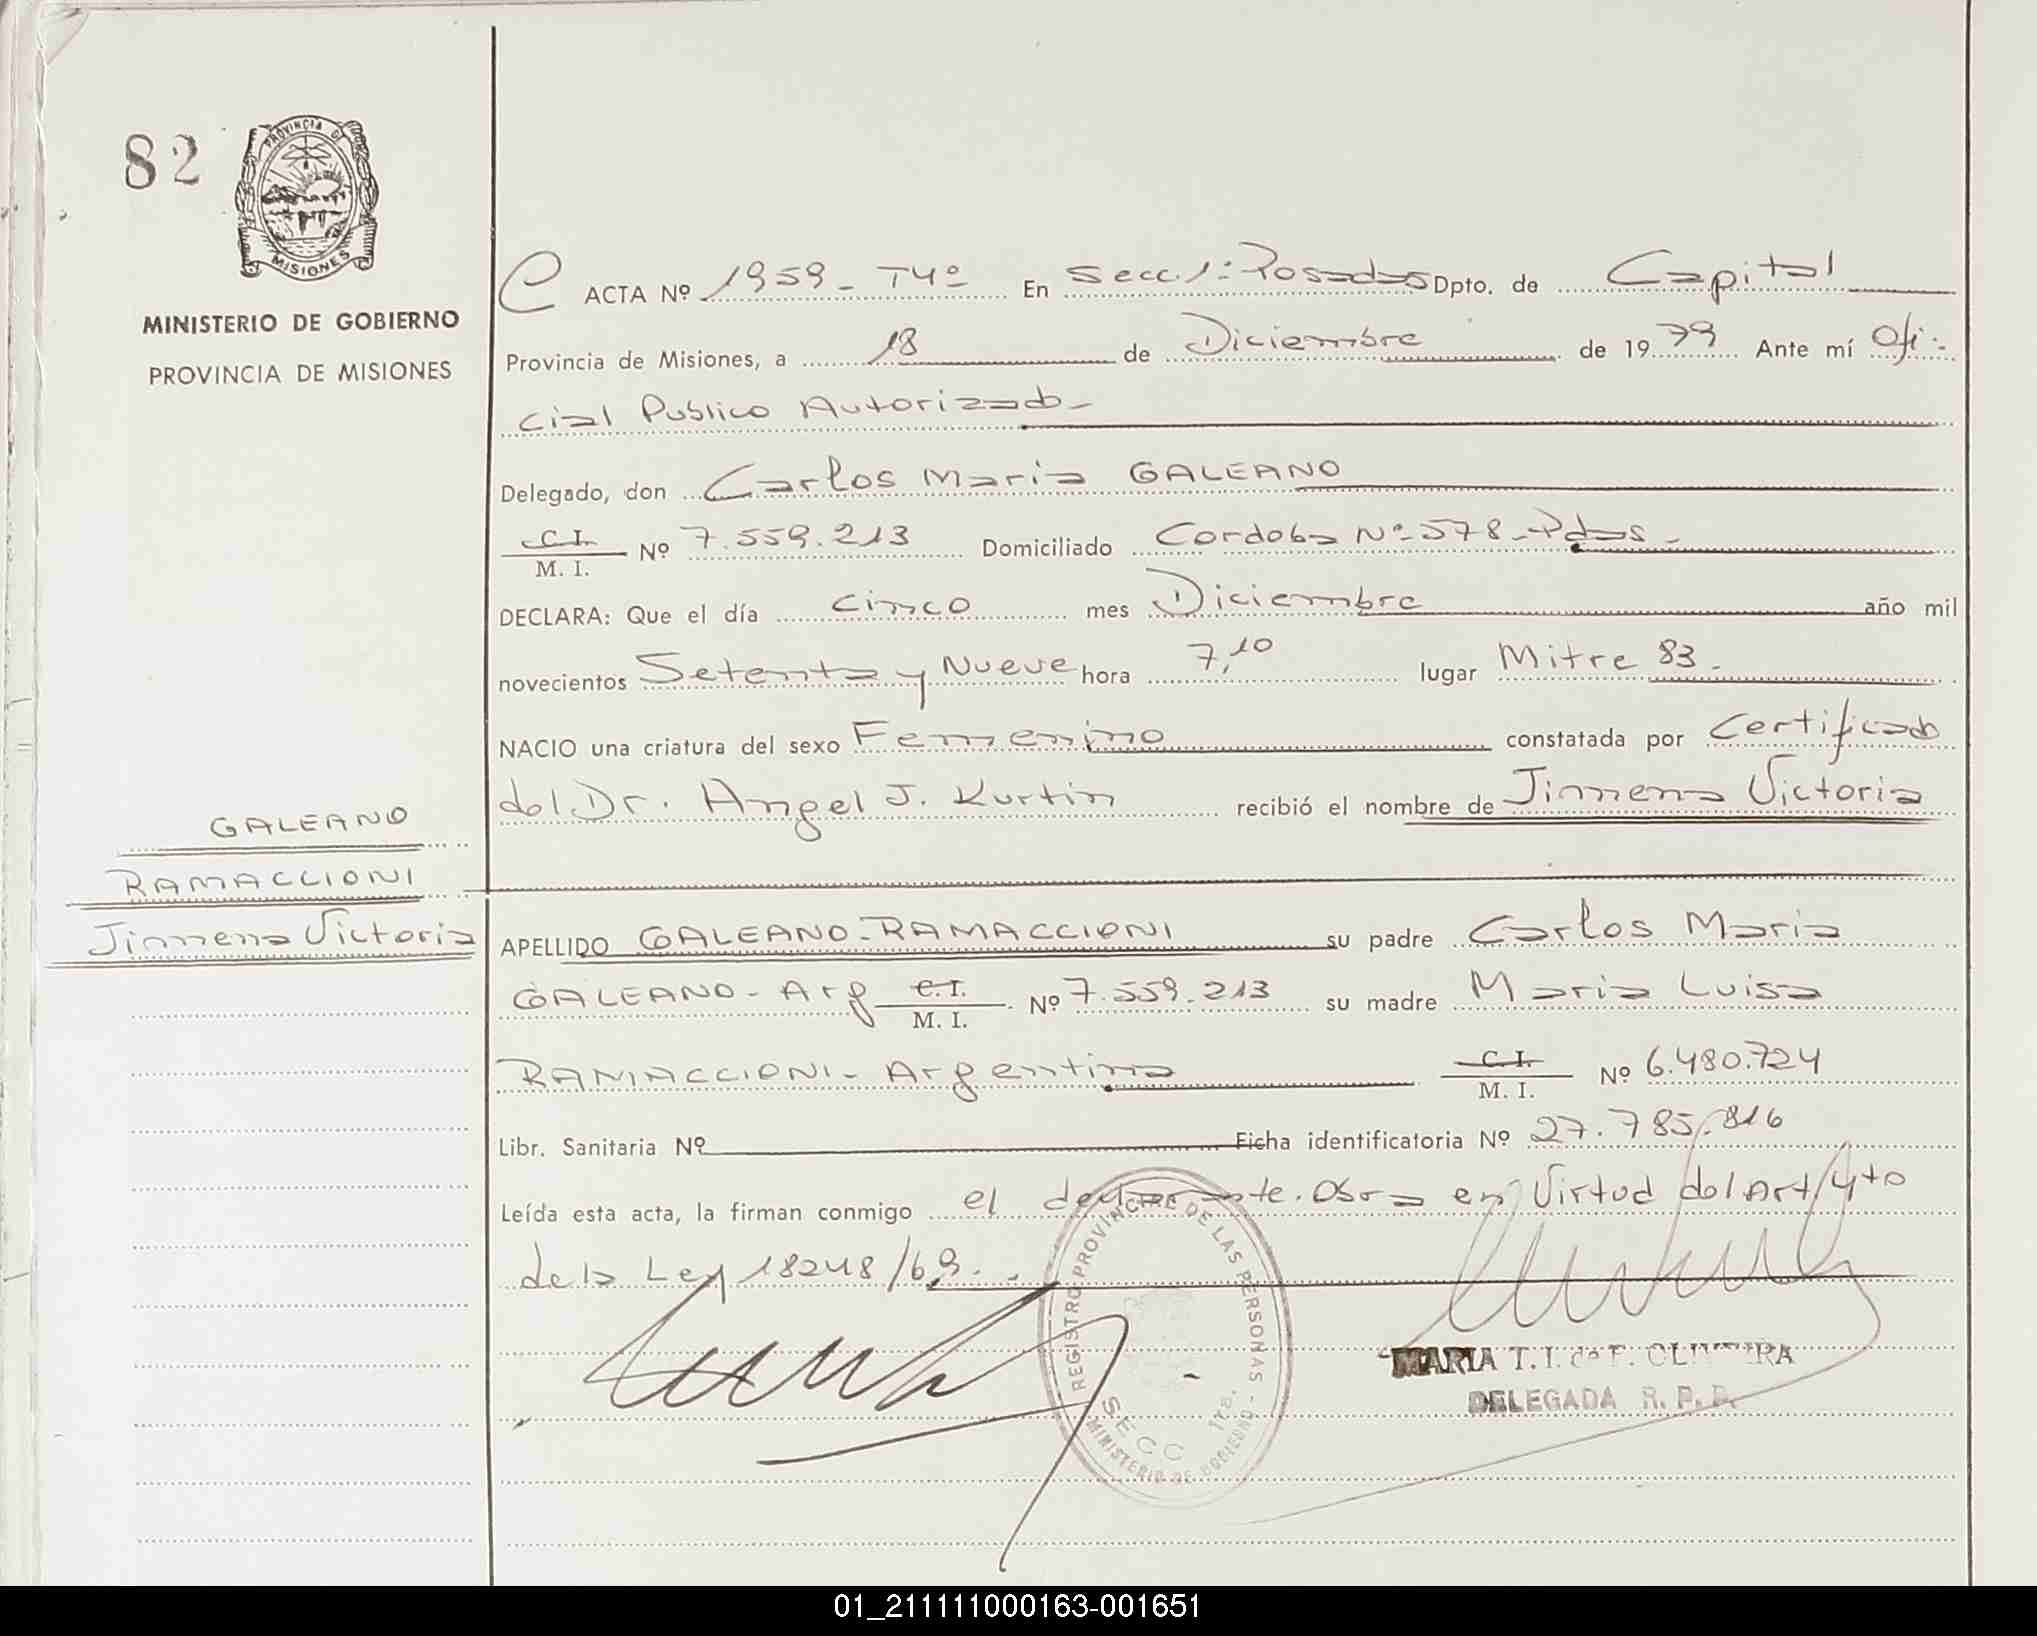 82
PROVINCIA DE
MISIONES
MINISTERIO DE GOBIERNO
PROVINCIA DE MISIONES
GALEANO
RAMACCIONI
Jimena Victoria
ACTA Nº 1959 - T4º En Secc. 1ª Posadas Dpto. de Capital
Provincia de Misiones, a 18 de Diciembre de 1979 Ante mí Ofi-
cial Publico Autorizado -
Delegado, don Carlos Maria GALEANO
C.I.
M. I. Nº 7.559.213 Domiciliado Cordoba Nº 578 - Pdas -
DECLARA: Que el día cinco mes Diciembre año mil
novecientos Setenta y Nueve hora 7,10 lugar Mitre 83 -
NACIO una criatura del sexo Femenino constatada por Certificado
del Dr. Angel J. Kurtin recibió el nombre de Jimena Victoria
APELLIDO GALEANO - RAMACCIONI su padre Carlos Maria
GALEANO - Arg C.I.
M. I. Nº 7.559.213 su madre Maria Luisa
RAMACCIONI - Argentina C.I.
M. I. Nº 6.480.724
Libr. Sanitaria Nº Ficha identificatoria Nº 27.785.816
Leída esta acta, la firman conmigo el declarante. Obra en Virtud del Art 4to
de la Ley 18248/69.
REGISTRO PROVINCIAL DE LAS PERSONAS -
SECC 1ra.
MINISTERIO DE GOBIERNO
MARIA T. I. de F. OLIVEIRA
DELEGADA R. P. P.
01_211111000163-001651